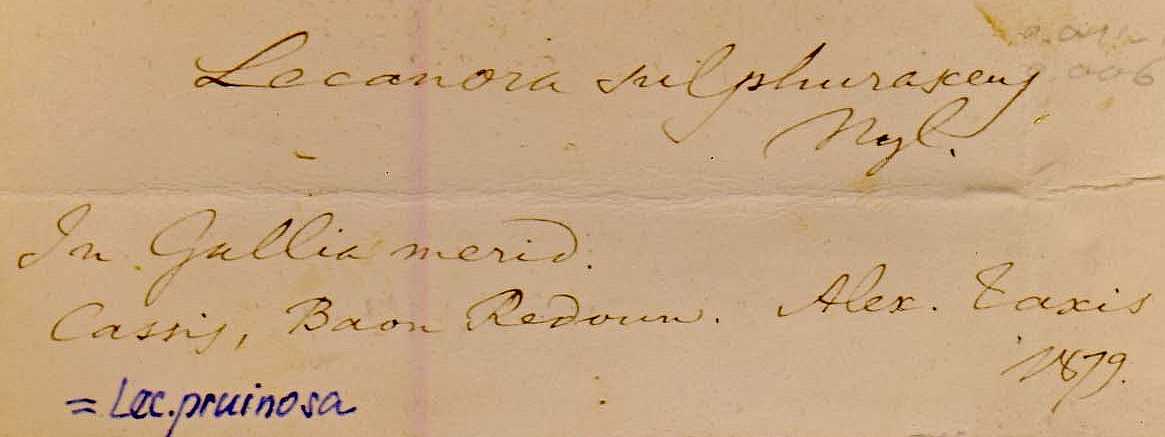 Lecanora sulphurascens
Nyl.
In Gallia merid.
Cassis, Baou Redoun. Alex. Taxis
1879.
= Lec. pruinosa